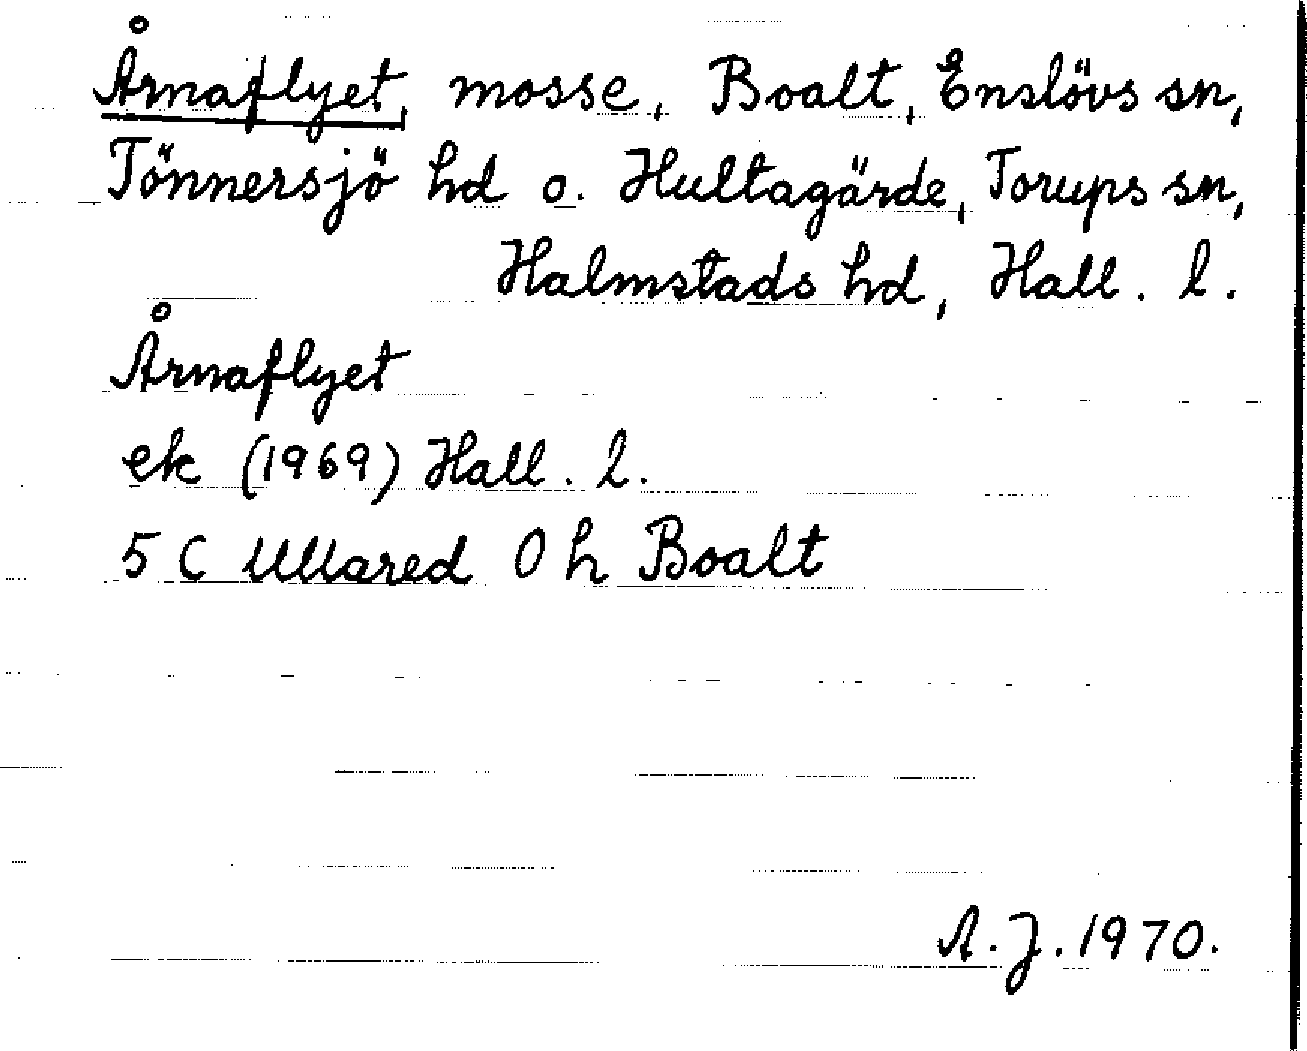 Årnaflyet, mosse, Boalt, Enslövs sn,
Tönnersjö hd o. Hultagärde, Torups sn,
Halmstads hd, Hall. l.
Årnaflyet
ek (1969) Hall. l.
5 C Ullared 0 h Boalt
A.J. 1970.